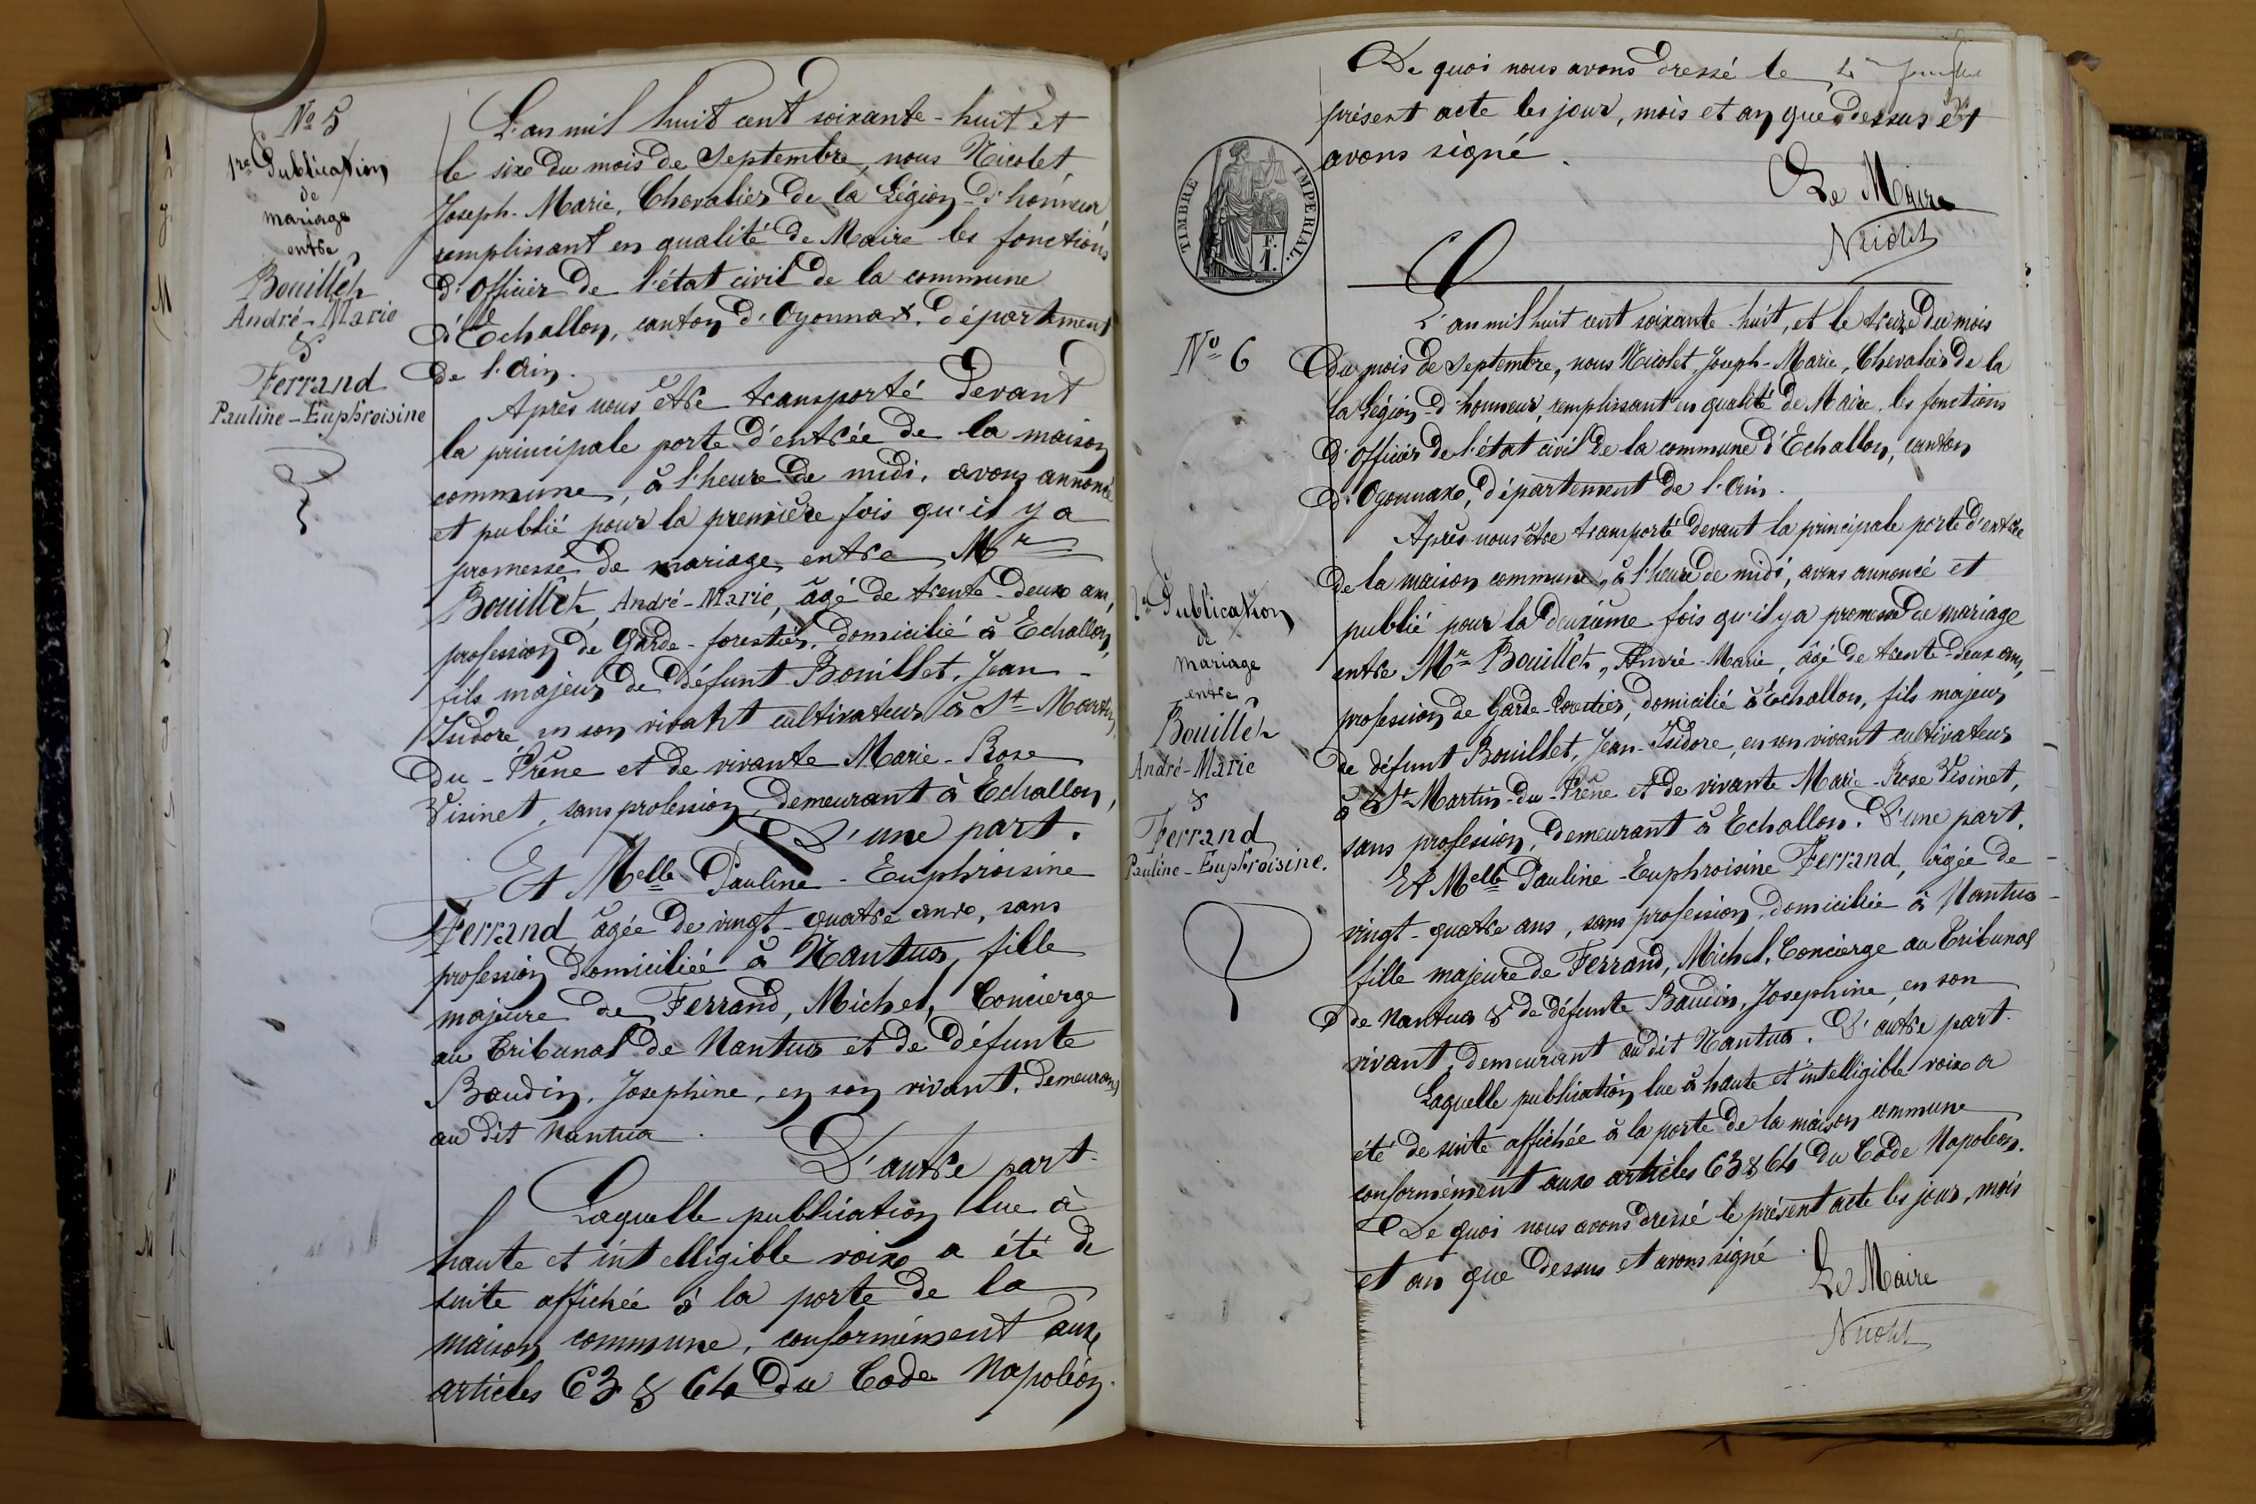 Nº 5
1re Publication
de
mariage
entre
Bouillet
André-Marie
&
Ferrand
Pauline-Euphroisine
L'an mil huit cent soixante-huit et
le six du mois de Septembre, nous Nicolet,
Joseph-Marie, Chevalier de la Légion d'honneur
remplissant en qualité de Maire les fonctions
d'Officier de l'état civil de la commune
d'Echallon, canton d'Oyonnax, département
de l'Ain.
Après nous être transporté devant
la principale porte d'entrée de la maison
commune, à l'heure de midi, avons annoncé
et publié pour la première fois qu'il y a
promesse de mariage entre Mr
Bouillet, André-Marie, âgé de trente-deux ans,
profession de Garde-forestier, domicilié à Echallon,
fils majeur de défunt Bouillet, Jean-
Isidore, en son vivant cultivateur à St-Martin
du-Frêne et de vivante Marie-Rose
Visinet, sans profession, demeurant à Echallon,
D'une part.
Et Melle Pauline-Euphroisine
Ferrand, âgée de vingt-quatre ans, sans
profession domiciliée à Nantua, fille
majeure de Ferrand, Michel, Concierge
au Tribunal de Nantua et de défunte
Baudin, Josephine, en son vivant, demeurant
au dit Nantua.
D'autre part.
Laquelle publication lue à
haute et intelligible voix a été de
suite affichée à la porte de la
maison commune, conformément aux
articles 63 & 64 du Code Napoléon.
De quoi nous avons dressé le
présent acte les jour, mois et an que dessus et
avons signé.
Le Maire
Nicolet
TIMBRE IMPERIAL.
F.
1.
Nº 6
2e Publication
de
mariage
entre
Bouillet
André-Marie
&
Ferrand
Pauline-Euphroisine.
L'an mil huit cent soixante-huit, et le treize du mois
du mois de Septembre, nous Nicolet, Joseph-Marie, Chevalier de la
la Légion d'honneur, remplissant en qualité de Maire, les fonctions
d'Officier de l'état civil de la commune d'Echallon, canton
d'Oyonnax, département de l'Ain.
Après nous être transporté devant la principale porte d'entrée
de la maison commune, à l'heure de midi, avons annoncé et
publié pour la deuxième fois qu'il y a promesse de mariage
entre Mr Bouillet, André-Marie, âgé de trente-deux ans,
profession de Garde-Forestier, domicilié à Echallon, fils majeur
de défunt Bouillet, Jean-Isidore, en son vivant cultivateur
à St-Martin-du-Frêne et de vivante Marie-Rose Visinet,
sans profession, demeurant à Echallon. D'une part.
Et Melle Pauline-Euphroisine Ferrand, âgée de
vingt-quatre ans, sans profession, domiciliée à Nantua
fille majeure de Ferrand, Michel, Concierge au Tribunal
de Nantua & de défunte Baudin, Josephine, en son
vivant, demeurant audit Nantua. D'autre part.
Laquelle publication lue à haute et intelligible voix a
été de suite affichée à la porte de la maison commune
conformément aux articles 63 & 64 du Code Napoléon.
De quoi nous avons dressé le présent acte les jour, mois
et an que dessus et avons signé.
Le Maire
Nicolet